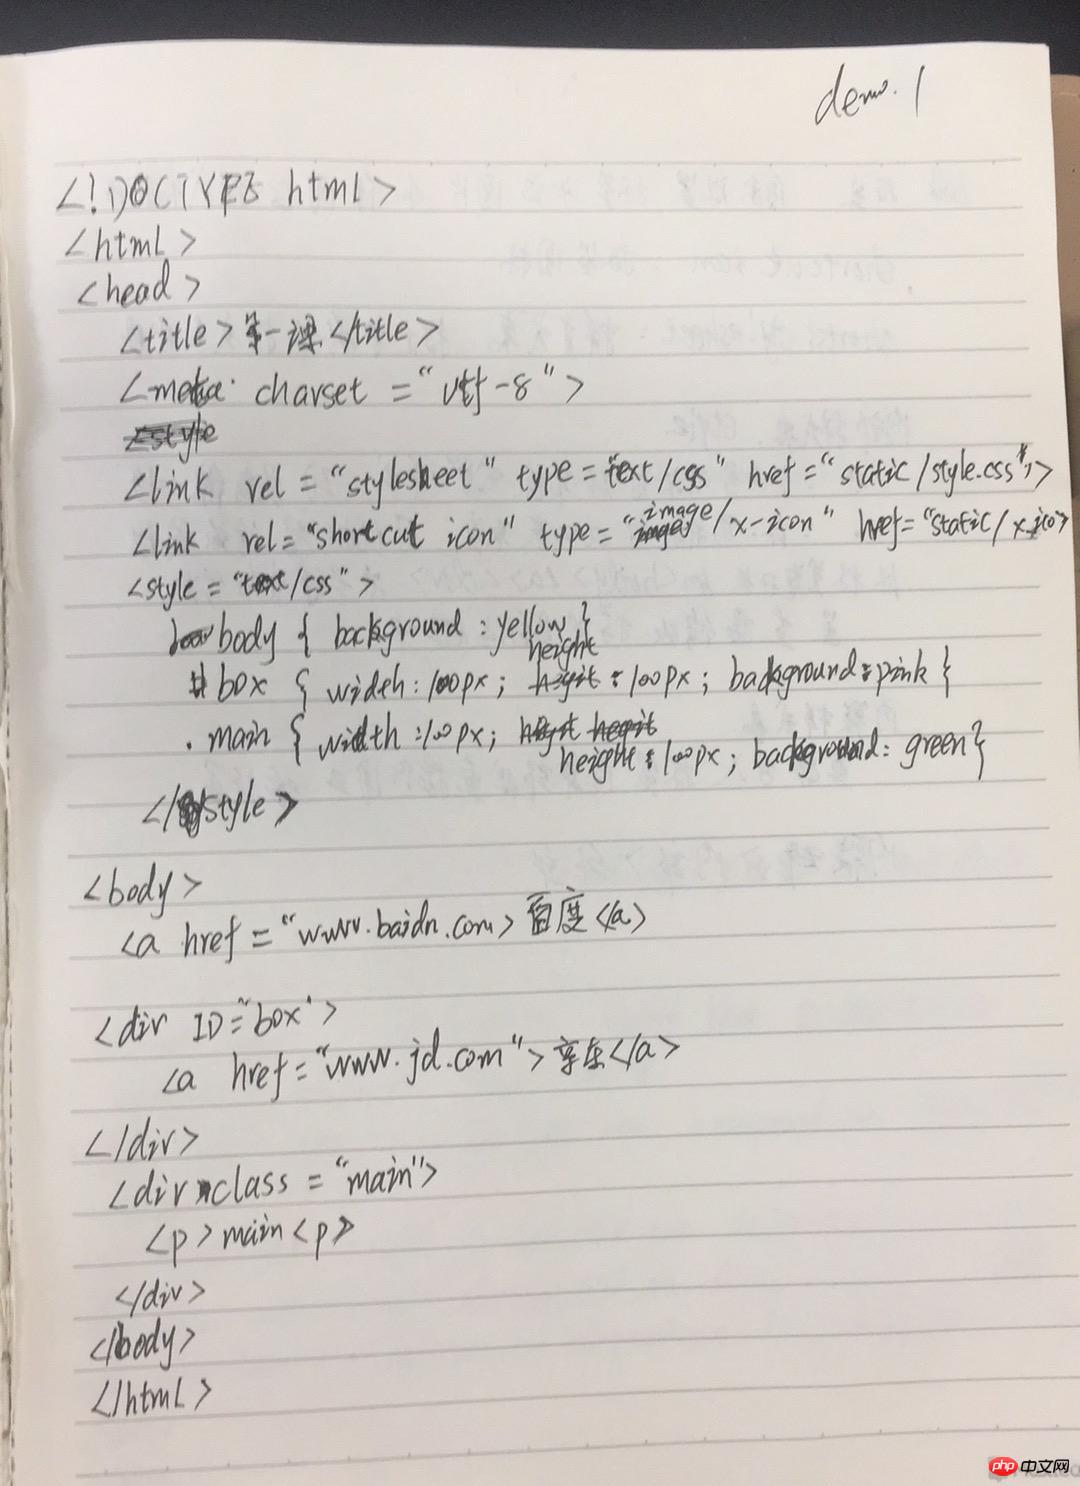 demo.1
<!DOCTYPE html>
<html>
<head>
<title>第一课</title>
<meta charset="utf-8">
<style
<link rel="stylesheet" type="text/css" href="static/style.css">
<link rel="shortcut icon" type="image/x-icon" href="static/x.ico>
<style="text/css">
body { background:yellow }
#box { width:100px; height:100px; background:pink }
.main { width:100px; height:100px; background:green }
</style>
<body>
<a href="www.baidu.com>百度</a>
<div ID="box">
<a href="www.jd.com">京东</a>
</div>
<div class="main">
<p>main<p>
</div>
</body>
</html>
php中文网